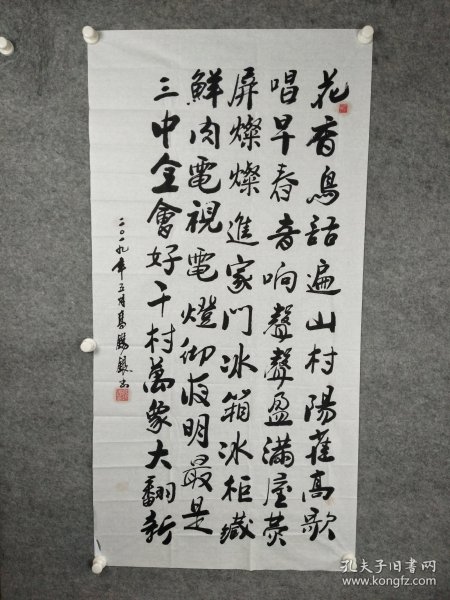 花香鳥語遍山村陽雀高歌
唱早春音响聲聲盈滿屋荧
屏燦燦進家門冰箱冰柜藏
鮮肉電視電燈仰夜明最是
三中全會好千村萬象大翻新
二〇一九年五月高錫银书
孔夫子旧书网
www.kongfz.com